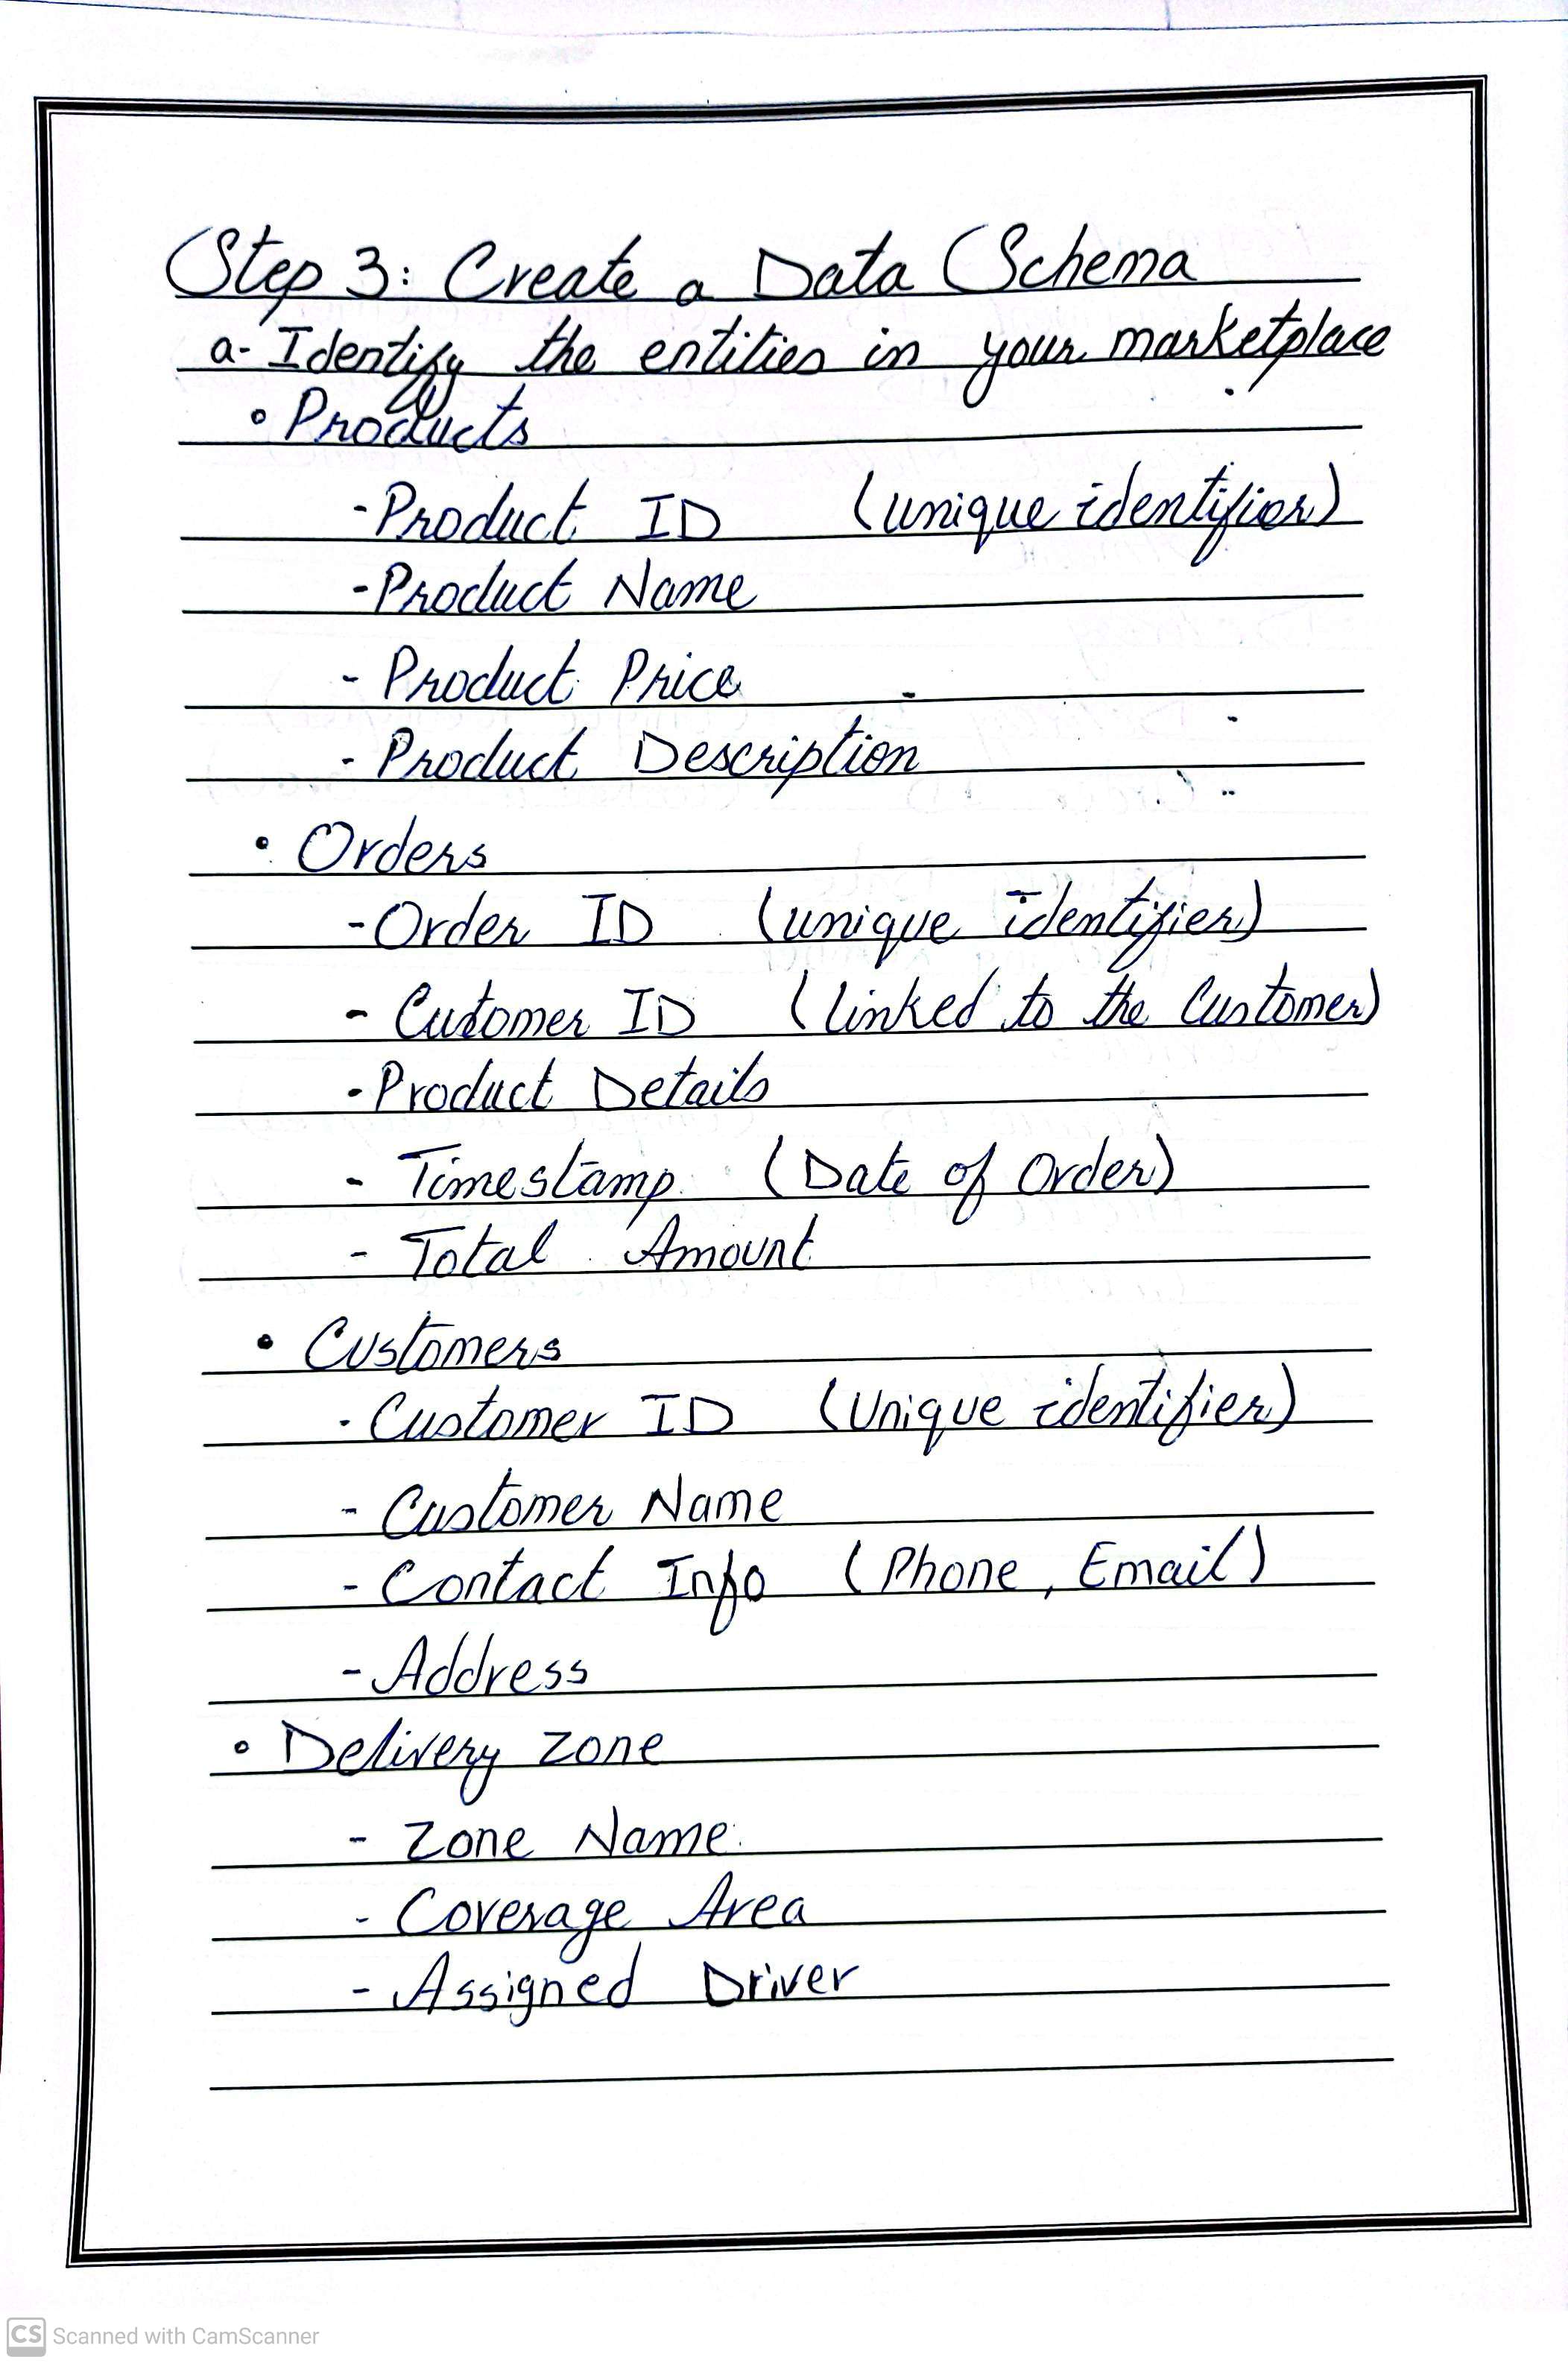 Step 3: Create a Data Schema
a- Identify the entities in your marketplace
• Products
- Product ID (unique identifier)
- Product Name
- Product Price
- Product Description
• Orders
- Order ID (unique identifier)
- Cutomer ID (linked to the Customer)
- Product Details
- Timestamp (Date of Order)
- Total Amount
• Customers
- Customer ID (Unique identifier)
- Customer Name
- Contact Info (Phone, Email)
- Address
• Delivery zone
- Zone Name
- Coverage Area
- Assigned Driver
CS Scanned with CamScanner